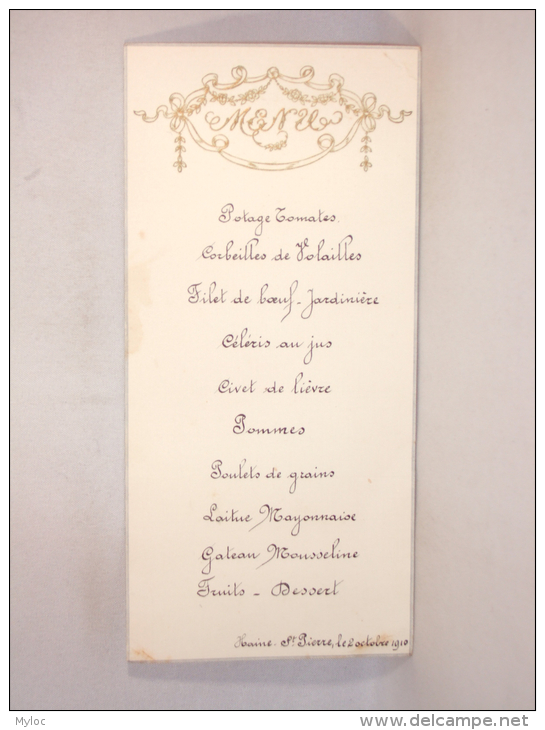 MENU
Potage Tomates.
Corbeilles de Volailles
Filet de bœuf - Jardinière
Céléris au jus
Civet de lièvre
Pommes
Poulets de grains
Laitue Mayonnaise
Gateau Mousseline
Fruits - Dessert
Haine - St Pierre, le 2 octobre 1910
Myloc
www.delcampe.net